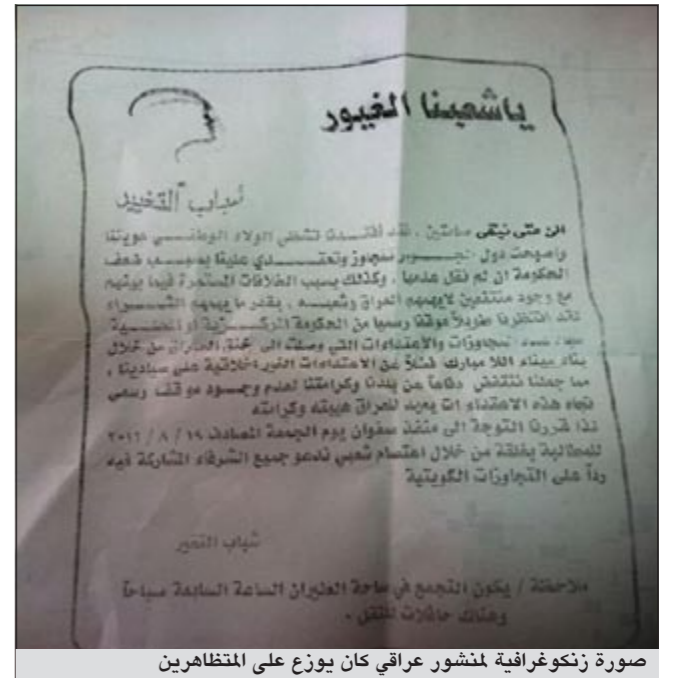 ياشعبنا الغيور
شباب التغيير
الى متى نبقى صامتين ، لقد افقدنا تشظي الولاء الوطني هويتنا
واصبحت دول الجوار تتجاوز وتعتدي علينا بسبب ضعف
الحكومة ان لم نقل عدمها ، وكذلك بسبب الخلافات المستمرة فيما بينهم
مع وجود منتفعين لايهمهم العراق وشعبه ، بقدر ما يهمهم الثراء
لقد انتظرنا طويلاً موقفا رسميا من الحكومة المركزية او المحلية
التجاوزات والاعتداءات التي وصلت الى خنق العراق من خلال
بناء ميناء اللا مبارك فضلاً عن الاعتداءات الغير اخلاقية على صيادينا ،
مما جعلنا ننتفض دفاعاً عن بلدنا وكرامتنا لعدم وجود موقف رسمي
تجاه هذه الاعتداء ات يعيد للعراق هيبته وكرامته
لذا قررنا التوجة الى منفذ سفوان يوم الجمعة المصادف ١٩ / ٨ / ٢٠١١
للمطالبة بغلقة من خلال اعتصام شعبي ندعو جميع الشرفاء المشاركة فيه
رداً على التجاوزات الكويتية
شباب التغيير
ملاحظة / يكون التجمع في ساحة الطيران الساعة السابعة صباحاً
وهناك حافلات للنقل .
صورة زنكوغرافية لمنشور عراقي كان يوزع على المتظاهرين